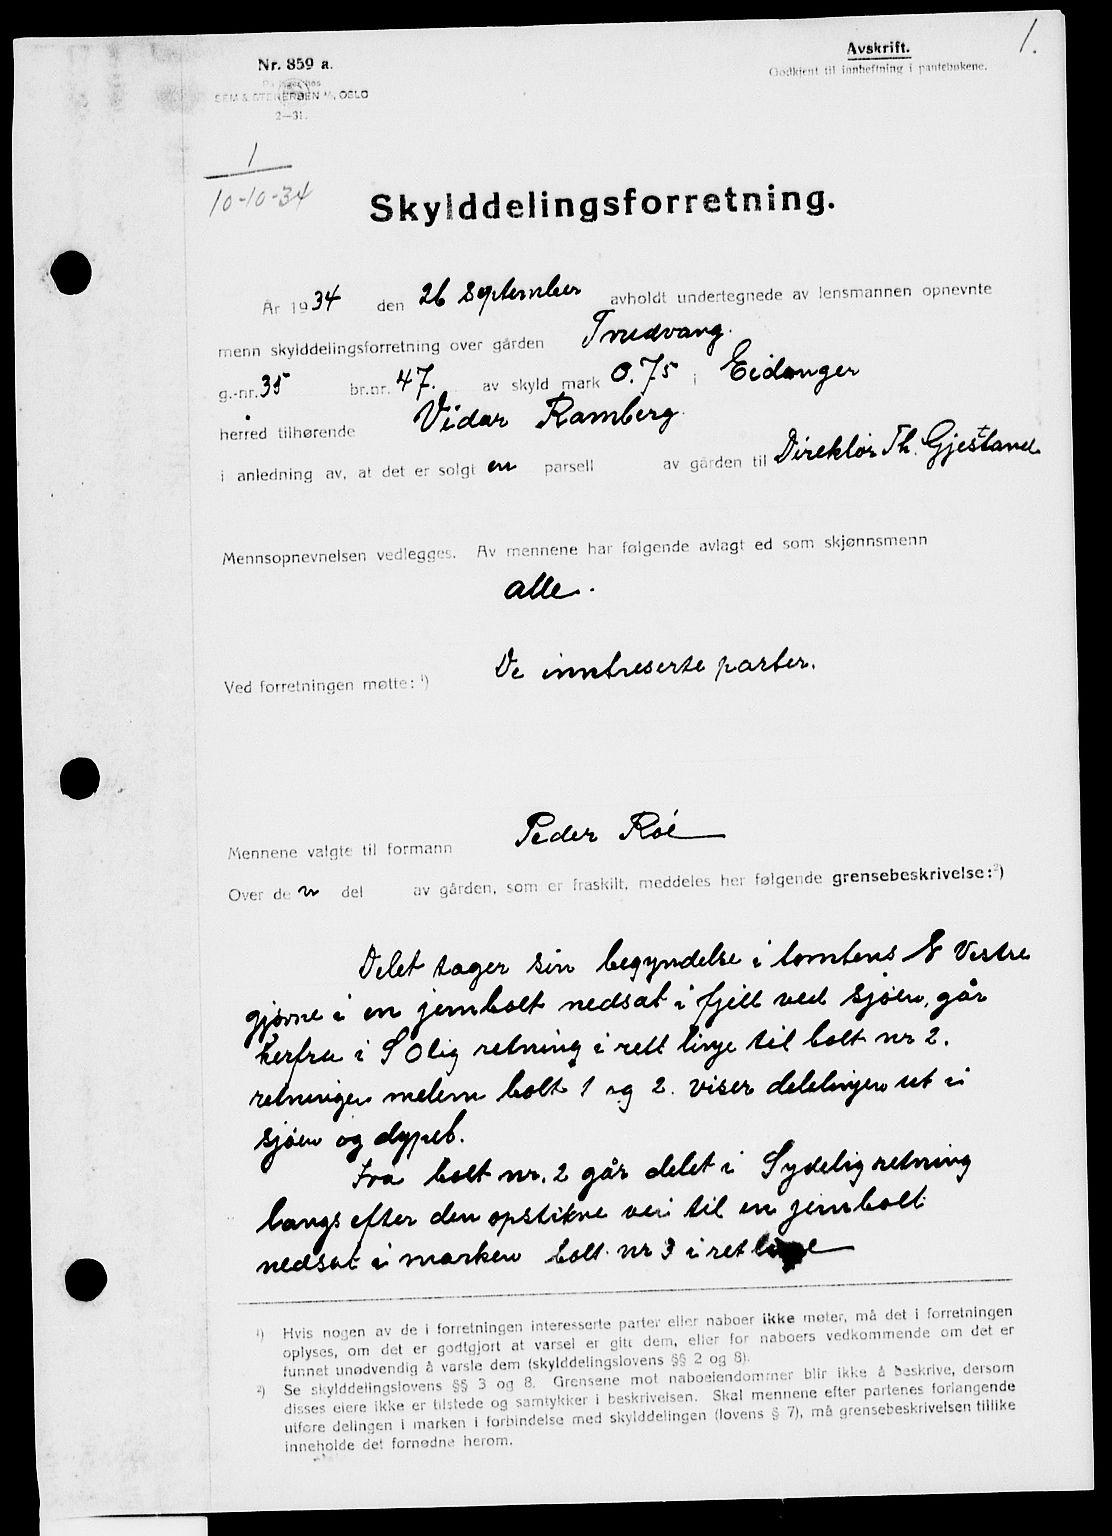 1.
Avskrift.
Godkjent til innheftning i pantebøkene.
Nr. 859 a.
SEM & STENERSEN A/S, OSLO
2—31.
1
10-10-34
Skylddelingsforretning.
År 1934 den 26 September avholdt undertegnede av lensmannen opnevnte
menn skylddelingsforretning over gården Trudvang.
g.-nr. 35 br.nr. 47. av skyld mark 0.75 i Eidanger
herred tilhørende Vidar Ramberg.
i anledning av, at det er solgt en parsell av gården til Direktör Th. Gjestland
Mennsopnevnelsen vedlegges. Av mennene har følgende avlagt ed som skjønnsmenn
alle.
Ved forretningen møtte: ¹) De inntreserte parter.
Mennene valgte til formann Peder Roe
Over den del av gården, som er fraskilt, meddeles her følgende grensebeskrivelse: ²)
Delet tager sin begyndelse i tomtens N Vestre
gjørne i en jernbolt nedsat i fjell ved sjøen, går
herfra i S Olig retning i rett linje til bolt nr 2.
retningen melem bolt 1 og 2. viser delelinjen ut i
sjøen og dypet.
Fra bolt nr. 2 går delet i Sydelig retning
langs efter den opstikne vei til en jernbolt
nedsat i marken bolt nr 3 i ret linje
¹) Hvis nogen av de i forretningen interesserte parter eller naboer ikke møter, må det i forretningen
oplyses, om det er godtgjort at varsel er gitt dem, eller for naboers vedkommende om det er
funnet unødvendig å varsle dem (skylddelingslovens §§ 2 og 8).
²) Se skylddelingslovens §§ 3 og 8. Grensene mot naboeiendommer blir ikke å beskrive, dersom
disses eiere ikke er tilstede og samtykker i beskrivelsen. Skal mennene efter partenes forlangende
utføre delingen i marken i forbindelse med skylddelingen (lovens § 7), må grensebeskrivelsen tillike
inneholde det fornødne herom.